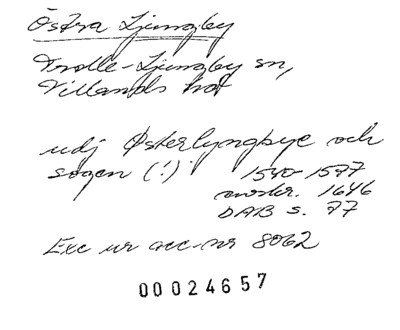 Östra Ljungby
Trolle-Ljungby sn,
Villands hd
udj Østerlyngbye och
sogen (!) 1540-1597
avskr. 1646
DAB s. 77
Exc ur acc-nr 8062
00024657